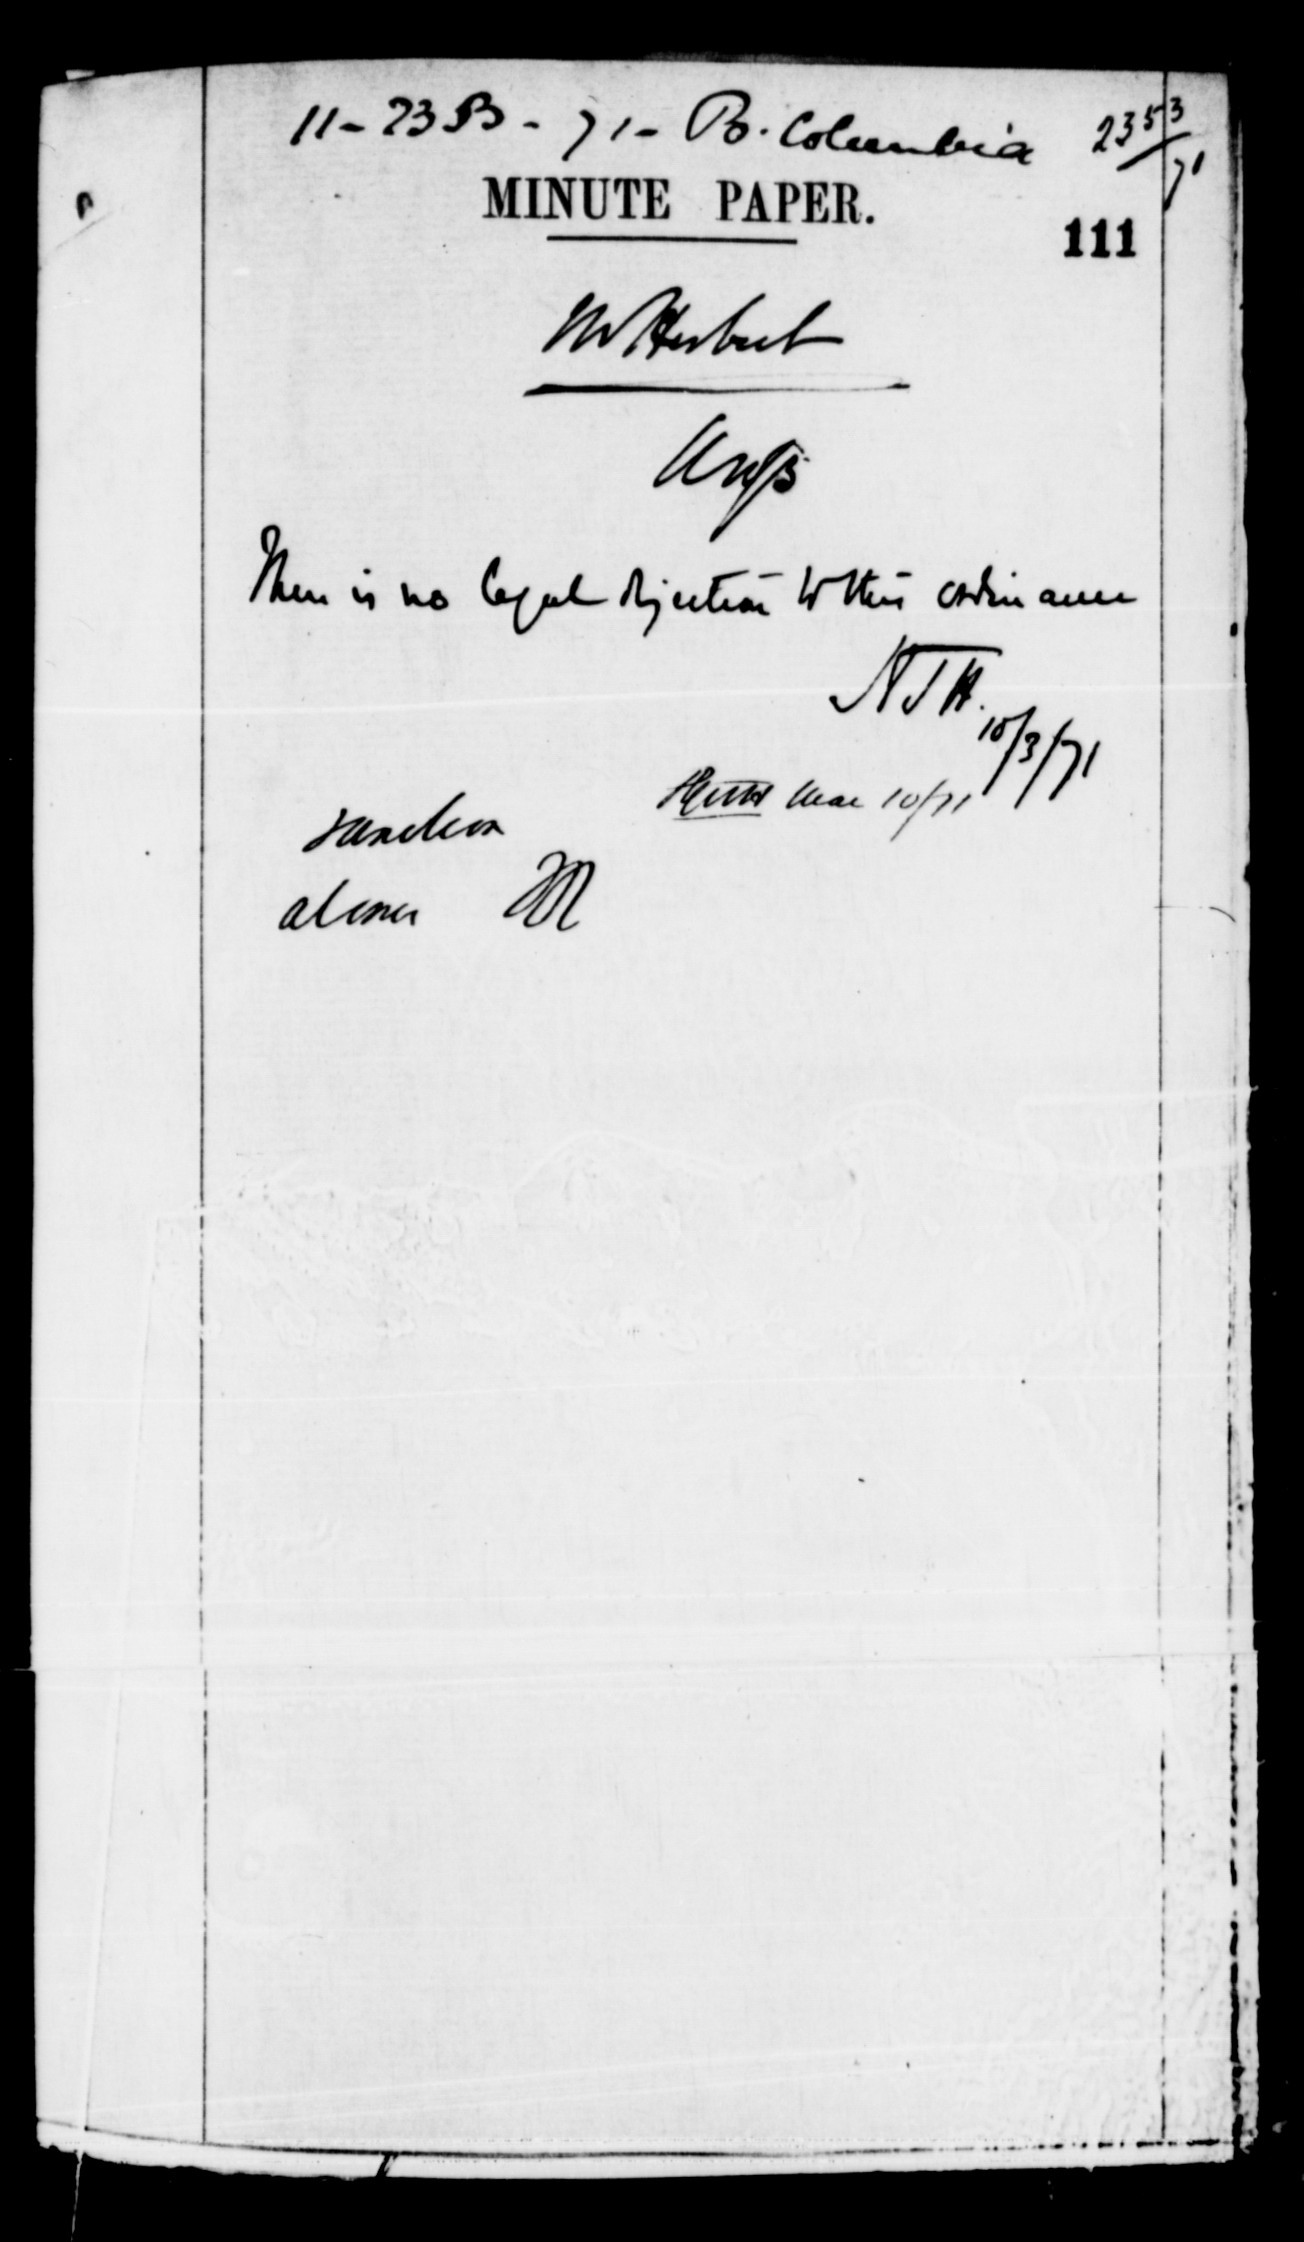 11 - 23 B - 71 - B. Columbia 2353/71
MINUTE PAPER.
111
Mr Herbert
There is no legal objection to this ordinance
10/3/71
Mar 10/71
Sanction